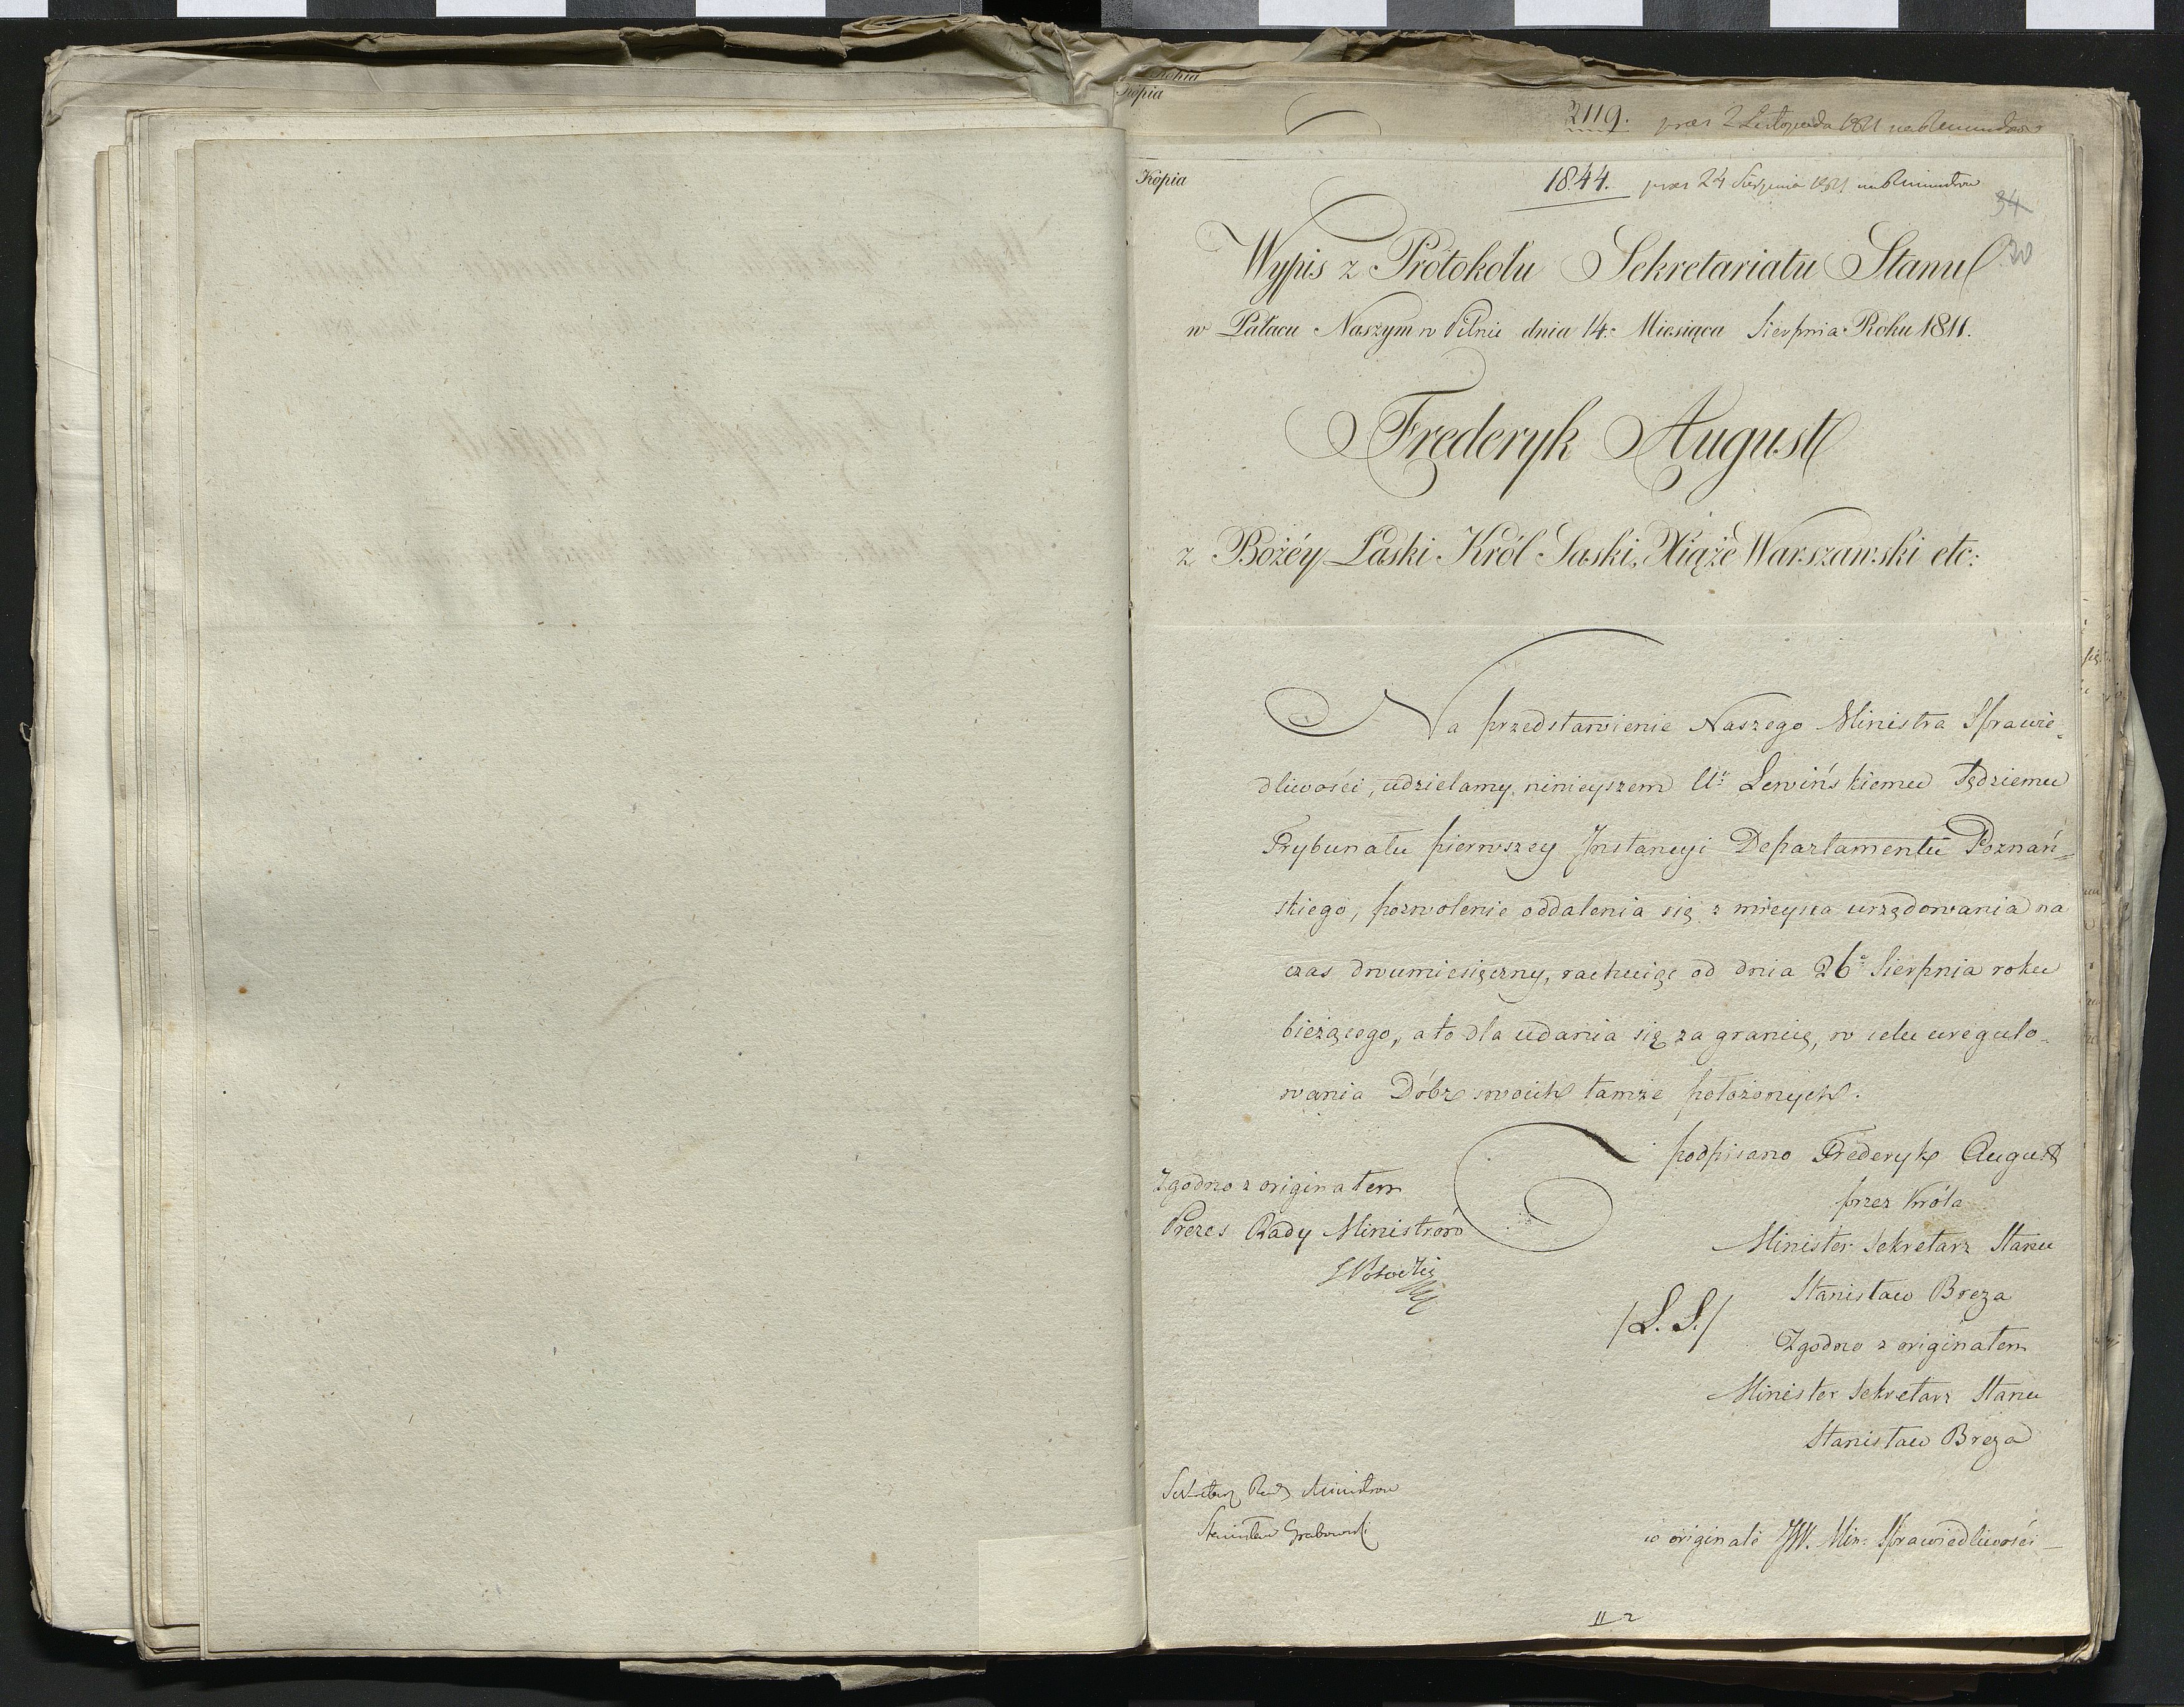 Kopia
Kopia
2119. prez 2 Listopada 1811 na R Ministrów
Kopia
1844. prez 24 Sierpnia 1811 na R Ministrów
34
30
Wypis z Protokołu Sekretariatu Stanu
w Pałacu Naszym w Pilnie dnia 14. Miesiąca Sierpnia Roku 1811.
Frederyk August
z Bożéy Łaski Król Saski, Xiąże Warszawski etc:
Na przedstawienie Naszego Ministra Sprawie-
dliwości, udzielamy ninieyszem Ur: Lewińskiemu Sędziemu
Trybunału pierwszey Instancyi Departamentu Poznań-
skiego, pozwolenie oddalenia się z mieysca urzędowania na
czas dwumiesięczny, rachuiąc od dnia 26° Sierpnia roku
bieżącego, a to dla udania się za granicę, w celu uregulo-
wania Dóbr swoich tamże położonych.
podpisano Frederyk August
przez Króla
Minister Sekretarz Stanu
Stanisław Breza
/L. S./
Zgodno z originałem
Minister Sekretarz Stanu
Stanisław Breza
Zgodno z originałem
Prezes Rady Ministrów
Sekretarz Rady Ministrów
Stanisław Grabowski
w originale JW. Min: Sprawiedliwości